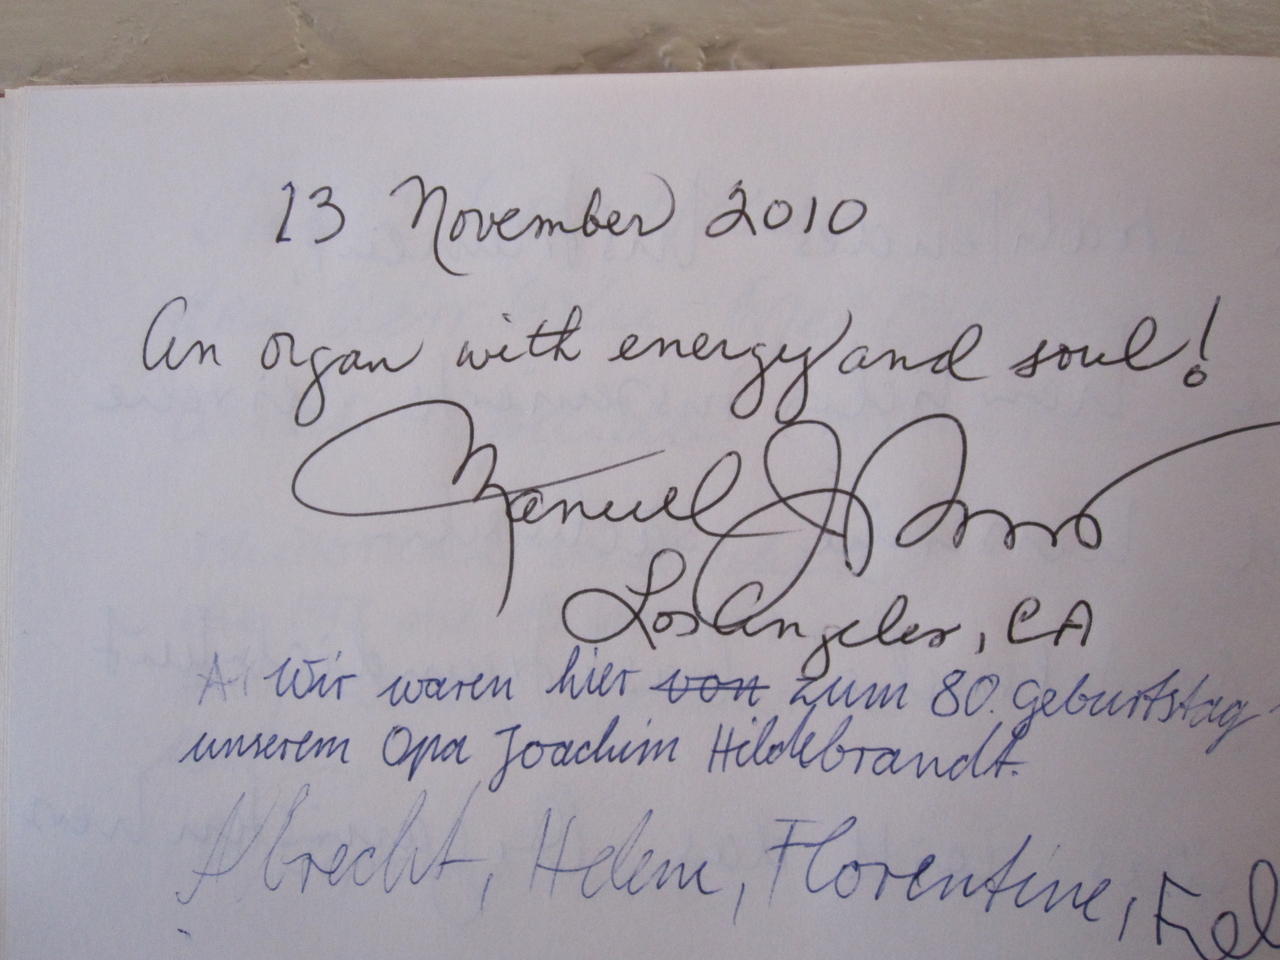 13 November 2010
An organ with energy and soul!
Manuel J
Los Angeles, CA
A. Wir waren hier von zum 80. Geburtstag
unserem Opa Joachim Hildebrandt.
Albrecht, Helene, Florentine,